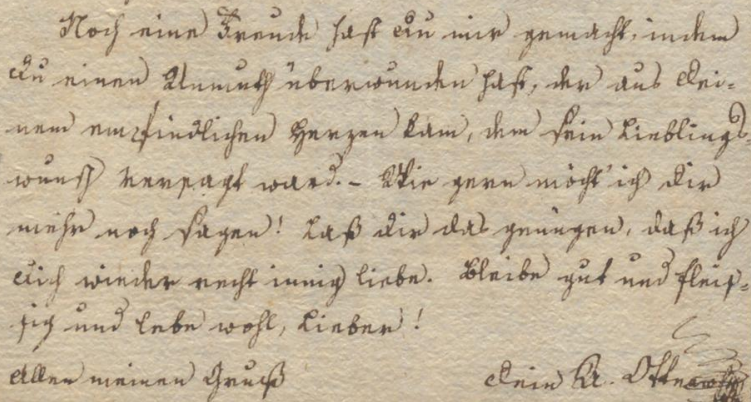 Noch eine Freude hast Du mir gemacht, indem
Du einen Unmuth überwunden hast, der aus Dei-
nem empfindlichen Herzen kam, dem sein Lieblings-
wunsch versagt ward. – Wie gern möcht' ich Dir
mehr noch sagen! Laß Dir das genügen, daß ich
Dich wieder recht innig liebe. Bleibe gut und fleis-
sig und lebe wohl, Lieber!
Allen meinen Gruß
Dein